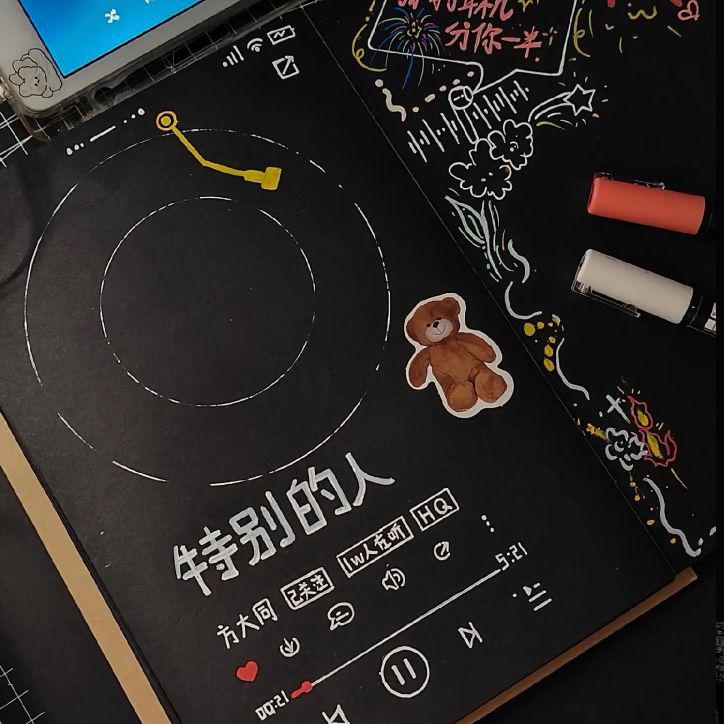 分你一半
特别的人
方大同 已关注 1w人在听 HQ
5:21
00:21